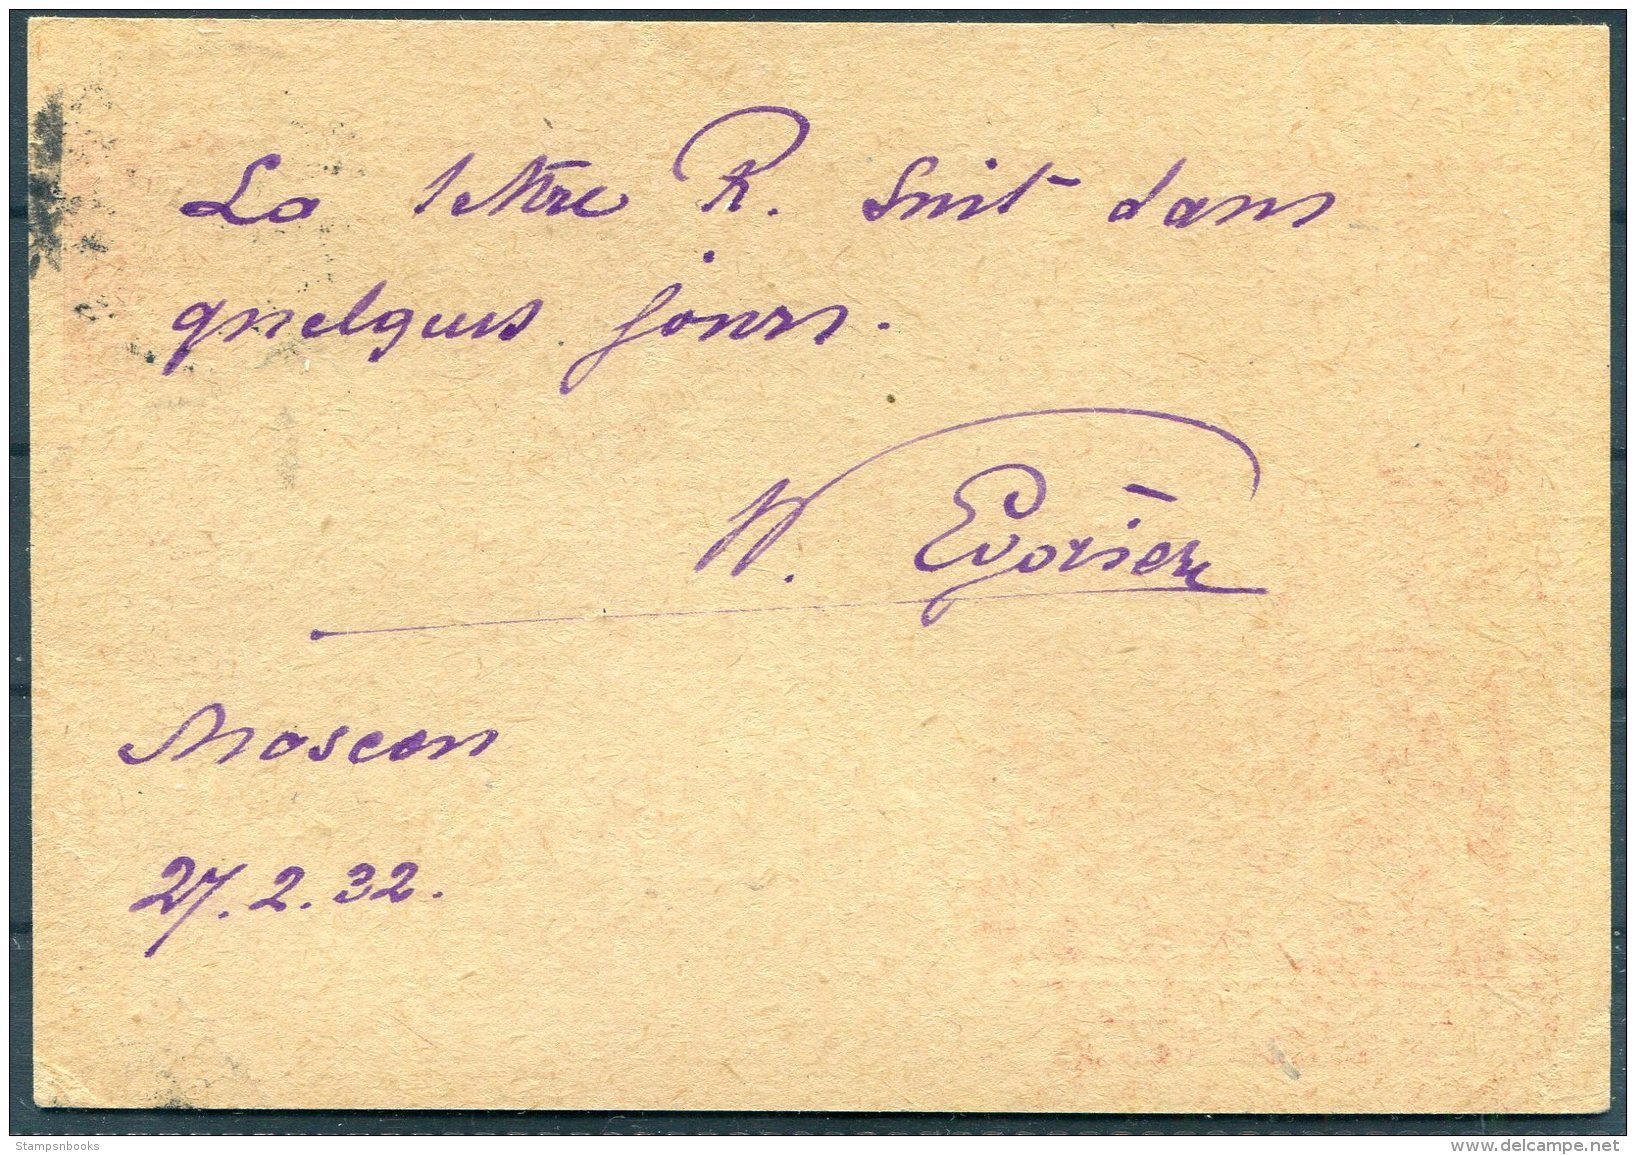 La lettre R. suit dans
quelques jours.
W.
Moscou
27.2.32.
Stampsnbooks
www.delcampe.net